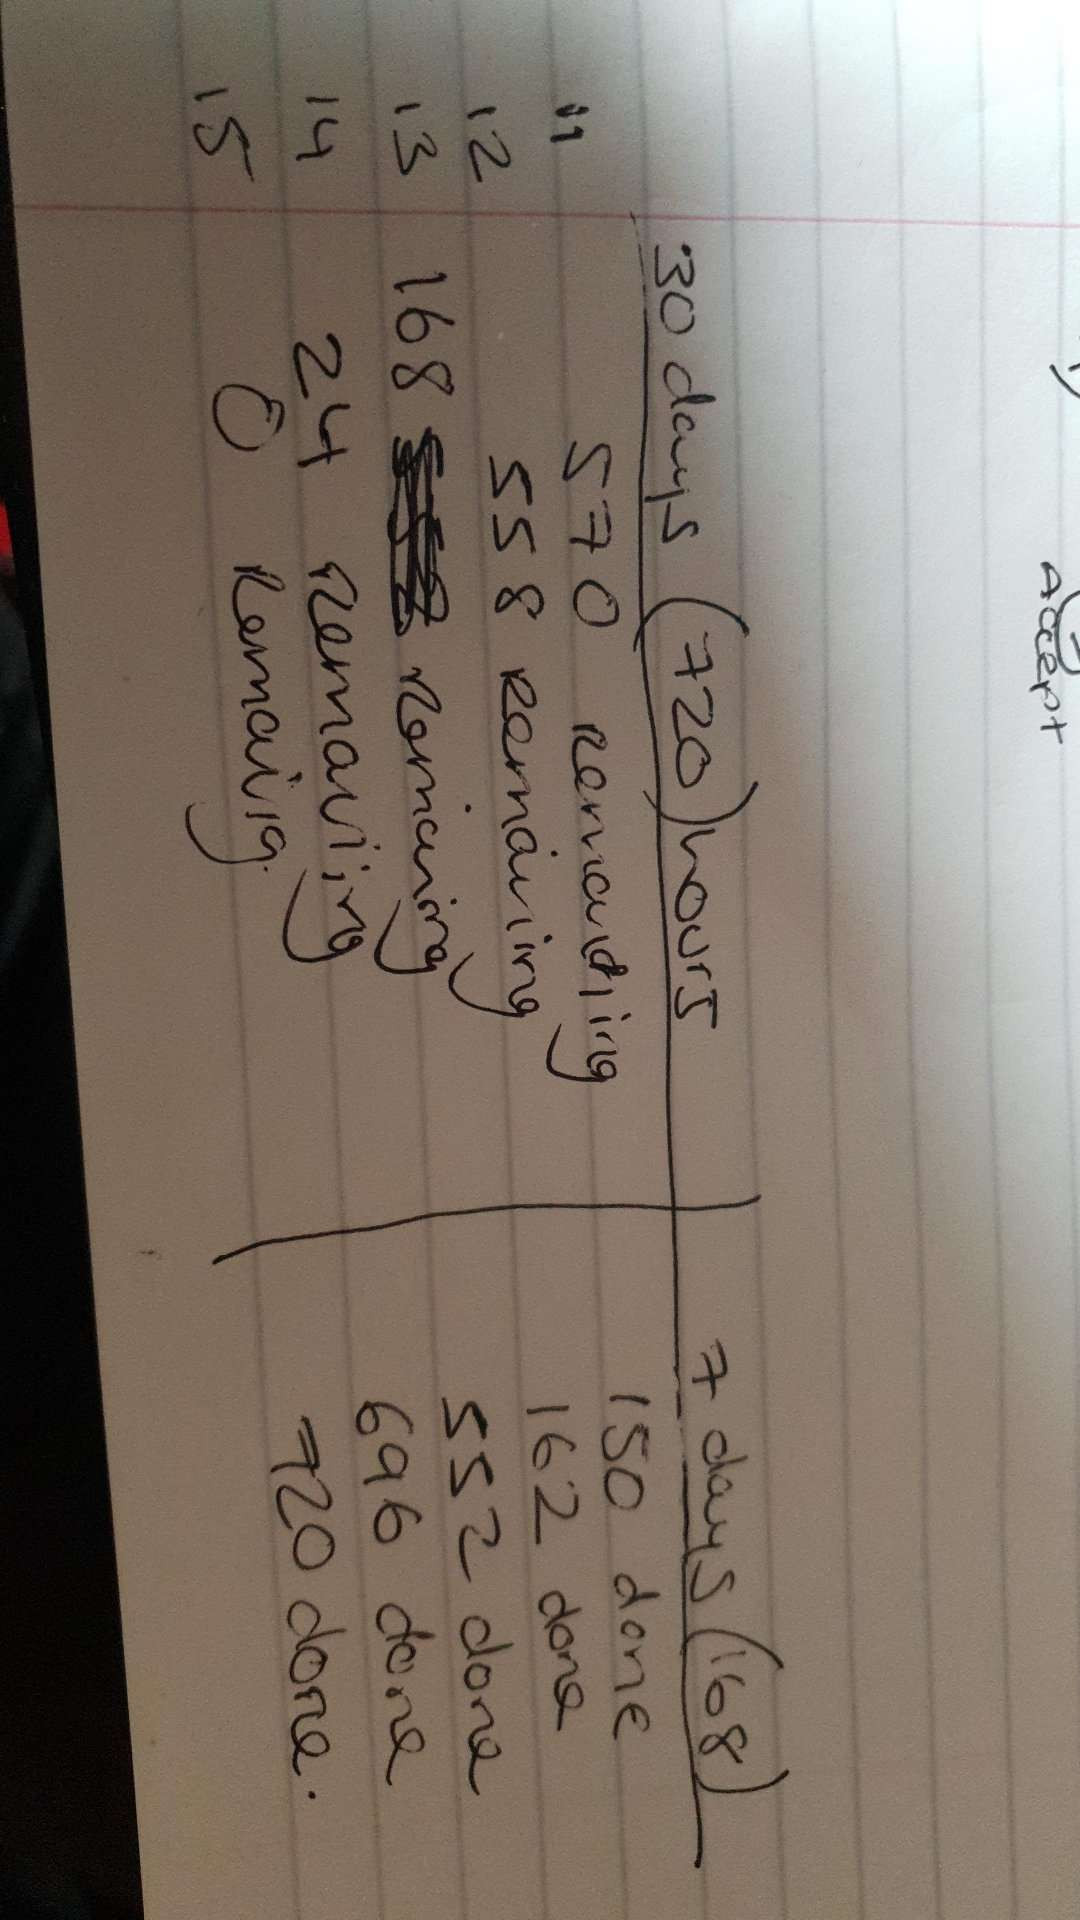 Accept
30 days (720) hours 7 days (168)
11 570 remaining 150 done
12 558 remaining 162 done
13 168 remaining 552 done
14 24 remaining 696 done
15 0 Remainig. 720 done.